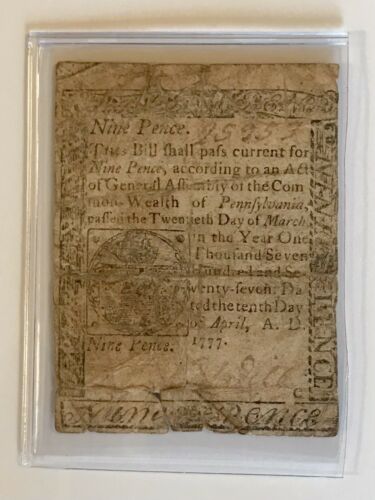 Nine Pence.
This Bill shall pass current for
Nine Pence, according to an Act
of General Assembly of the Com
mon-Wealth of Pennsylvania,
passed the Twentieth Day of March
in the Year One
Thousand Seven
Hundred and Se-
venty-seven. Da
ted the tenth Day
of April, A. D.
1777.
Nine Pence.
PENCE
C
Nine Pence